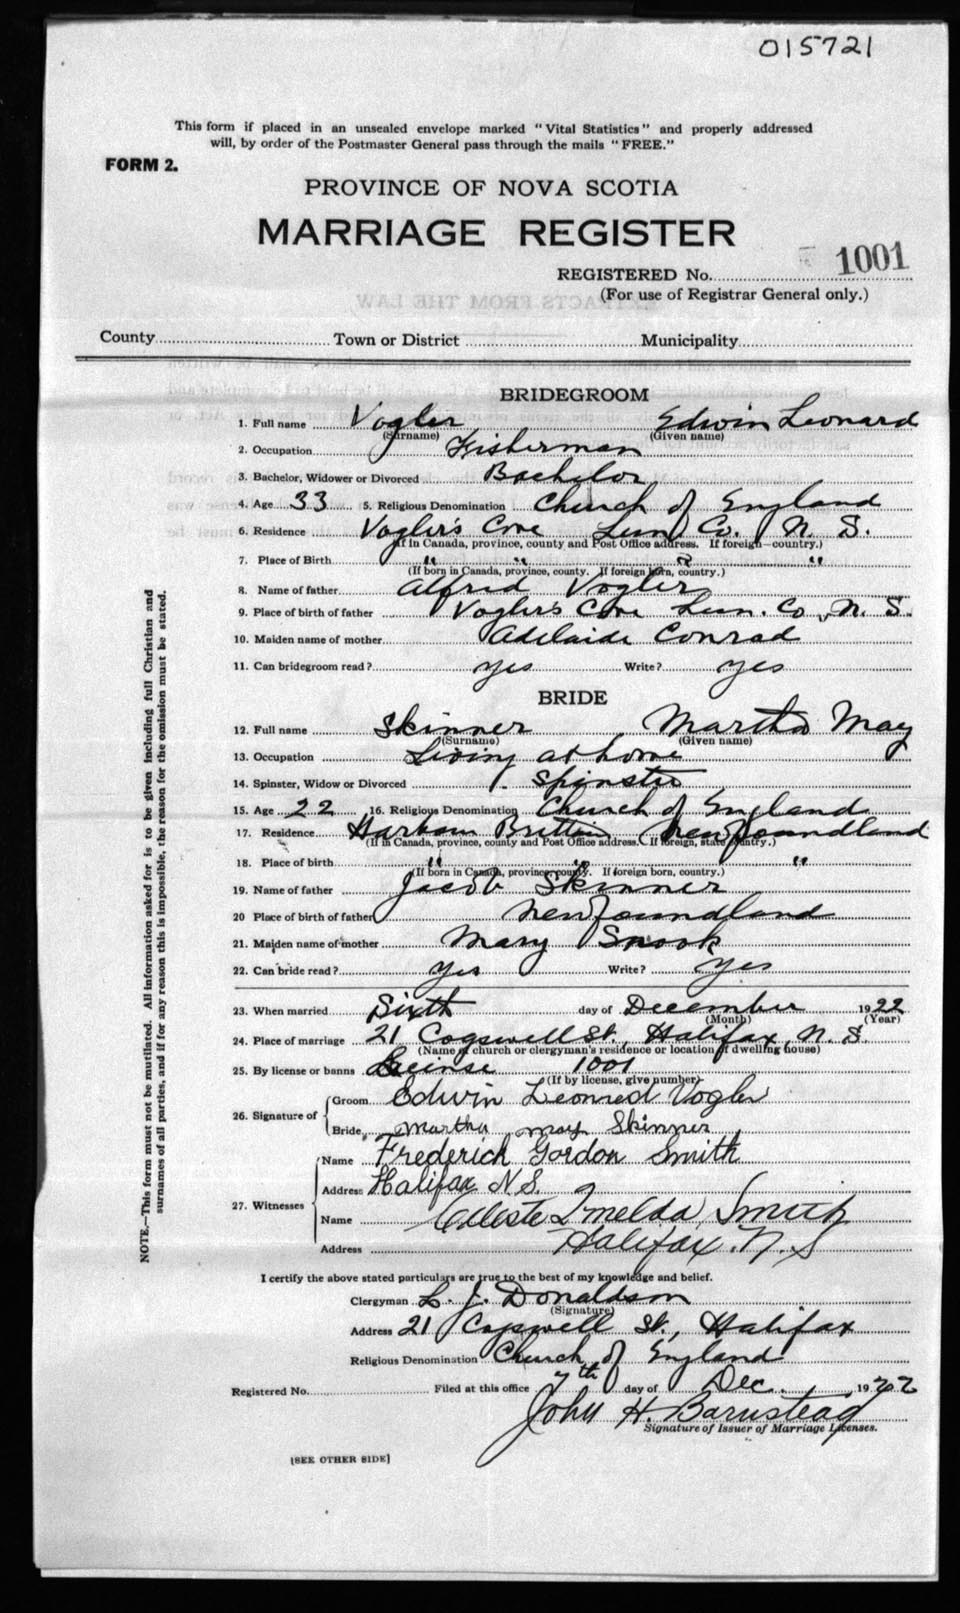 015721
This form if placed in an unsealed envelope marked "Vital Statistics" and properly addressed
will, by order of the Postmaster General pass through the mails "FREE."
FORM 2.
PROVINCE OF NOVA SCOTIA
MARRIAGE REGISTER
REGISTERED No. 1001
(For use of Registrar General only.)
County Town or District Municipality
BRIDEGROOM
1. Full name Vogler Edwin Leonard
(Surname) (Given name)
2. Occupation Fisherman
3. Bachelor, Widower or Divorced Bachelor
4. Age 33 5. Religious Denomination Church of England
6. Residence Vogler's Cove Lun. Co. N. S.
(If in Canada, province, county and Post Office address. If foreign—country.)
7. Place of Birth " " " "
(If born in Canada, province, county. If foreign born, country.)
8. Name of father Alfred Vogler
9. Place of birth of father Vogler's Cove Lun. Co, N. S.
10. Maiden name of mother Adelaide Conrad
11. Can bridegroom read? yes Write? yes
BRIDE
12. Full name Skinner Martha May
(Surname) (Given name)
13. Occupation Living at home
14. Spinster, Widow or Divorced Spinster
15. Age 22 16. Religious Denomination Church of England
17. Residence Harbour Brittain Newfoundland
(If in Canada, province, county and Post Office address. If foreign, state country.)
18. Place of birth " " "
(If born in Canada, province, county. If foreign born, country.)
19. Name of father Jacob Skinner
20 Place of birth of father Newfoundland
21. Maiden name of mother Mary Snook
22. Can bride read? yes Write? yes
23. When married Sixth day of December 1922
(Month) (Year)
24. Place of marriage 21 Cogswell St., Halifax, N. S.
(Name of church or clergyman's residence or location of dwelling house)
25. By license or banns License 1001
(If by license, give number)
26. Signature of
Groom Edwin Leonred Vogler
Bride, Martha may Skinner
27. Witnesses
Name Frederick Gordon Smith
Address Halifax N.S.
Name Celeste Imelda Smith
Address Halifax. N. S
I certify the above stated particulars are true to the best of my knowledge and belief.
Clergyman L. J. Donaldson
(Signature)
Address 21 Cogswell St., Halifax
Religious Denomination Church of England
Registered No. Filed at this office 7th day of Dec. 1922
John H. Barnstead
Signature of Issuer of Marriage Licenses.
[SEE OTHER SIDE]
NOTE.—This form must not be mutilated. All information asked for is to be given including full Christian and
surnames of all parties, and if for any reason this is impossible, the reason for the omission must be stated.